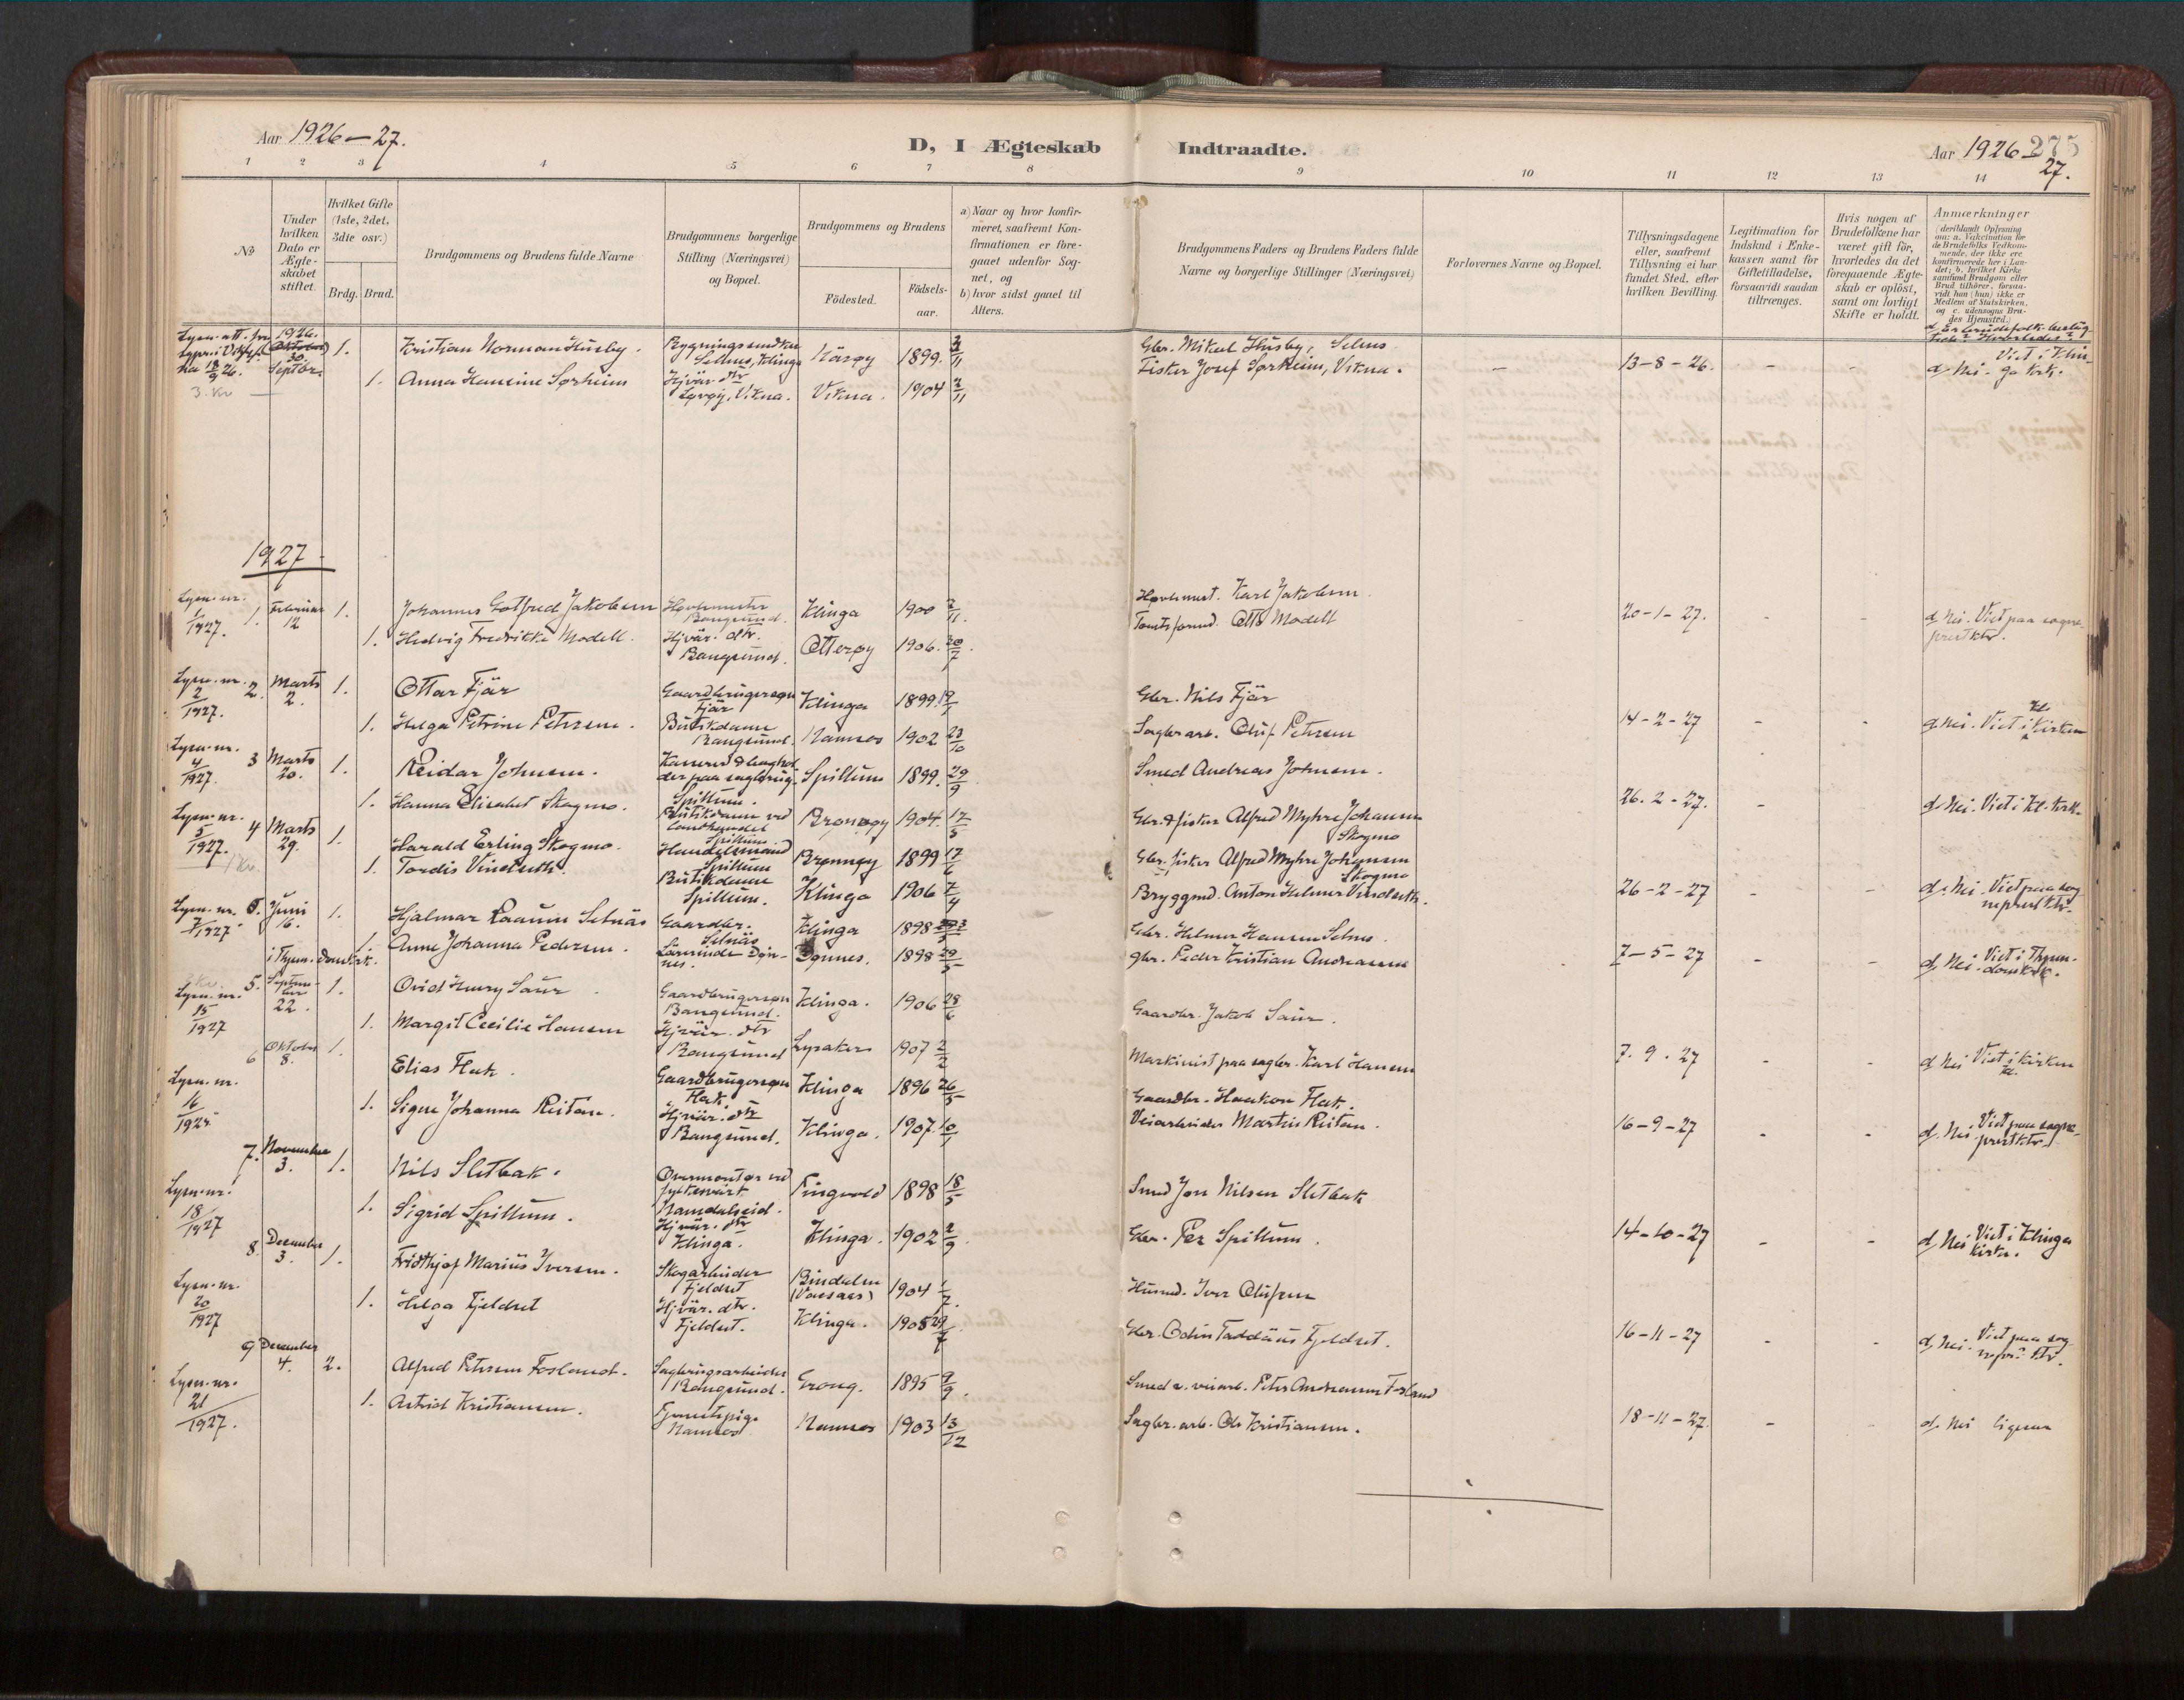 Aar 1926-27.
D, I Ægteskab Indtraadte.
Aar 1926-27.
275
1 2 3 4 5 6 7 8 9 10 11 12 13 14
No
Under hvilken Dato er Ægteskabet stiftet.
Hvilket Gifte (1ste, 2det, 3die osv.)
Brdg. Brud.
Brudgommens og Brudens fulde Navne
Brudgommens borgerlige Stilling (Næringsvei) og Bopæl.
Brudgommens og Brudens
Fødested.
Fødselsaar.
a) Naar og hvor konfirmeret, saafremt Konfirmationen er foregaaet udenfor Sognet, og
b) hvor sidst gaaet til Alters.
Brudgommens Faders og Brudens Faders fulde Navne og borgerlige Stillinger (Næringsvei)
Forlovernes Navne og Bopæl.
Tillysningsdagene eller, saafremt Tillysning ei har fundet Sted, efter hvilken Bevilling.
Legitimation for Indskud i Enkekassen samt for Giftetilladelse, forsaavidt saadan tiltrænges.
Hvis nogen af Brudefolkene har været gift før, hvorledes da det foregaaende Ægteskab er opløst, samt om lovligt Skifte er holdt.
Anmærkninger (deriblandt Oplysning om: a. Vakcination for de Brudefolks Vedkommende, der ikke ere konfirmerede her i Landet; b. hvilket Kirkesamfund Brudgom eller Brud tilhører, forsaavidt han (hun) ikke er Medlem af Statskirken, og c. udensogns Brudes Hjemsted.)
1926. 30. Septbr. 1. Kristian Norman Húsby. Selnes, Klinga Nærøy 1899. 3/11 Gbr. Mikael Húsby, Selnes
1. Anna Hansine Sørheim Hjvær. dtr Vikna. Vikna. 1904 2/11 Fisker Josef Sørheim, Vikna. - 13-8-26. - - d, Nei. Viet i Klinga kirk.
3. Kr
1927
Lysn. nr. 1/1927. 1. Februar 12 1. Johannes Gotfred Jakobsen Høvlemester Bangsund. Klinga 1900 2/11. Høvlemest. Karl Jakobsen
1. Hedvig Fredrikke Modell. Hjvær. dtr. Bangsund. Otterøy 1906. 20/7. Tomtsformd. Otto Modell 20-1-27. d, Nei. Viet paa sogneprestktr.
Lysn. nr. 2/1927. 2. Marts 2. 1. Ottar Fjär Gaardbrugersøn Fjär Klinga 1899. Gbr. Nils Fjär
1. Helga Petrine Petersen. Bútikdame Bangsund. Namsos 1902 23/10 Sagbr. arb. Oluf Petersen 14-2-27 - - d, Nei. Viet i Kl. Kirken
Lysn. nr. 4/1927. 3 Marts 20. 1. Reidar Johnsen. Spillum. Spillum 1899. 29/9 Smed Andreas Johnsen.
1. Hanna Elisabet Skogmo. Bútikdame ved Spillum Brønnøy 1904. 17/5 Gbr. & fisker Alfred Myhre Johansen Skogmo 26.2-27. - d, Nei. Viet i Kl. kirk.
Lysn. nr. 5/1927. 4 Marts 29. 1. Harald Erling Skogmo. Handelsmand Spillum Brønnøy 1899 17/6 Gbr. fisker Alfred Myhre Johansen Skogmo
1 Kr.
1. Tordis Vindseth. Bútikdame Spillum. Klinga 1906 7/4 Bryggmd. Anton Helmer Vindseth. 26-2-27 - - d, Nei. Viet paa sogneprestktr.
Lysn. nr. 7/1927. 5. Juni 16. 1. Hjalmar Selnäs Gaardbr. Selnäs Klinga 1898 Gbr. Helmer Hansen Selnes.
i Thjem. domkirk. 1. Anne Johanna Pedersen. Lærerinde 1898 29/5 gbr. Peder Kristian Andreassen 7-5-27 - - d, Nei. Viet i Thjem. domkrk.
Lysn. nr. 15/1927 5. September 22. 1. Ovid Henry Saur Gaardbrugersøn Bangsund. Klinga. 1906 28/6 Gaardbr. Jakob Saur.
1. Margit Cecilie Hansen Hjvær. dtr Bangsund Lysaker 1907 2/2 Maskinist paa sagbr. Karl Hansen 7.9.27 - - d, Nei Viet i kirken
Lysn. nr. 16/1927 6 Oktober 8. 1. Elias Flak. Gaardbrugersøn Flak. Klinga 1896 26/5 Gaardbr. Haakon Flak.
1. Signe Johanna Reitan. Hjvær. dtr Bangsund. Klinga. 1907. Veiarbeider Martin Reitan. 16-9-27 - - d, Nei Viet paa sogneprestktr.
Lysn. nr. 18/1927 7. November 3. 1. Nils Sletbak. Overmontør ved Namdalseid. Tingvold 1898 18/5 Smed Jon Nilsen Sletbak
1. Sigrid Spillum. Hjvær. dtr Klinga. Klinga. 1902 2/9 Gbr. Per Spillum. 14-10-27 - - d, Nei Viet i Klinga kirke.
Lysn. nr. 20/1927 8. December 3. 1. Fridthjof Marius Iversen. Skogarbeider Fjeldset Bindalen 1904 1/7. Húsmd. Iver Olufsen
1. Helga Fjeldset Hjvær. dtr. Fjeldset. Klinga. 1905 29/7 Gbr. Odin Taddäus Fjeldset. 16-11-27 - - d, Nei. Viet paa sognepr. ktr.
Lysn. nr. 21/1927. 9 December 4. 2. Alfred Petersen Fosland. Sagbrugsarbeider Bangsund. Grong. 1895 9/9. Smed & veiarb. Peter Andreassen Fosland
1. Astrid Kristiansen. Tjenestepige Namsos Namsos 1903 13/12 Sagbr. arb. Ole Kristiansen. 18-11-27. - - d, Nei ligesaa